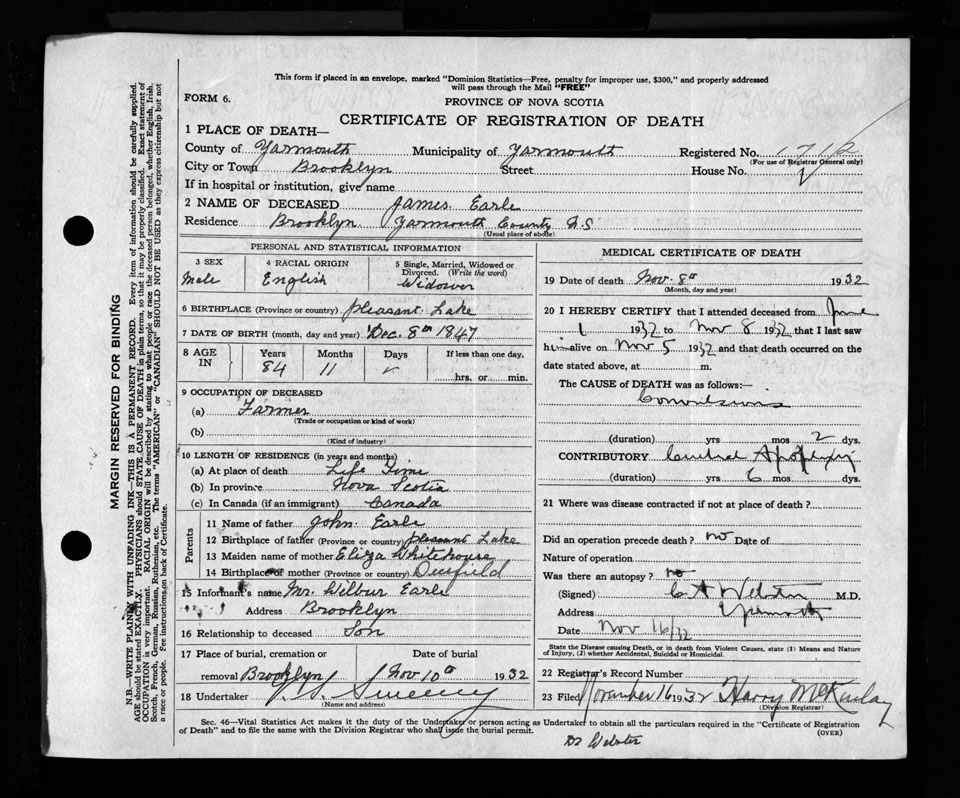 This form if placed in an envelope, marked "Dominion Statistics—Free, penalty for improper use, $300," and properly addressed
will pass through the Mail "FREE"
FORM 6.
PROVINCE OF NOVA SCOTIA
CERTIFICATE OF REGISTRATION OF DEATH
1 PLACE OF DEATH—
County of Yarmouth Municipality of Yarmouth Registered No. 1712
(For use of Registrar General only)
City or Town Brooklyn Street House No.
If in hospital or institution, give name
2 NAME OF DECEASED James Earle
Residence Brooklyn Yarmouth County N.S
(Usual place of abode)
PERSONAL AND STATISTICAL INFORMATION
3 SEX 4 RACIAL ORIGIN 5 Single, Married, Widowed or
Divorced. (Write the word)
Male English Widower
6 BIRTHPLACE (Province or country) pleasant Lake
7 DATE OF BIRTH (month, day and year) Dec. 8th 1847
8 AGE IN Years Months Days If less than one day.
84 11 hrs. or min.
9 OCCUPATION OF DECEASED
(a) Farmer
(Trade or occupation or kind of work)
(b)
(Kind of industry)
10 LENGTH OF RESIDENCE (in years and months)
(a) At place of death Life Time
(b) In province Nova Scotia
(c) In Canada (if an immigrant) Canada
Parents
11 Name of father John Earle
12 Birthplace of father (Province or country) pleasant Lake
13 Maiden name of mother Eliza Whitehouse
14 Birthplace of mother (Province or country) Deerfield
15 Informant's name Mr. Wilbur Earle
Address Brooklyn
16 Relationship to deceased Son
17 Place of burial, cremation or Date of burial
removal Brooklyn Nov. 10th 1932
18 Undertaker Sweeny
(Name and address)
MEDICAL CERTIFICATE OF DEATH
19 Date of death Nov. 8th 1932
(Month, day and year)
20 I HEREBY CERTIFY that I attended deceased from June
1 1932 to Nov 8 1932 that I last saw
him alive on Nov 5 1932 and that death occurred on the
date stated above, at m.
The CAUSE of DEATH was as follows:—
Convulsions
(duration) yrs mos 2 dys.
CONTRIBUTORY Cerebral Apoplexy
(duration) yrs 6 mos dys.
21 Where was disease contracted if not at place of death?
Did an operation precede death? no Date of
Nature of operation
Was there an autopsy? no
(Signed) C A Webster M.D.
Address Yarmouth
Date Nov 16/32
State the Disease causing Death, or in death from Violent Causes, state (1) Means and Nature
of Injury, (2) whether Accidental, Suicidal or Homicidal.
22 Registrar's Record Number
23 Filed November 16 1932 Harry McKinlay
(Division Registrar)
Sec. 46—Vital Statistics Act makes it the duty of the Undertaker or person acting as Undertaker to obtain all the particulars required in the "Certificate of Registration
of Death" and to file the same with the Division Registrar who shall issue the burial permit.
(OVER)
Dr Webster
MARGIN RESERVED FOR BINDING
N.B.—WRITE PLAINLY WITH UNFADING INK—THIS IS A PERMANENT RECORD. Every item of information should be carefully supplied.
AGE should be stated EXACTLY. PHYSICIANS should STATE CAUSE OF DEATH in plain terms, so that it may be properly classified. Exact statement of
OCCUPATION is very important. RACIAL ORIGIN will be described by stating to what people or race the deceased person belonged, whether English, Irish,
Scotch, French, German, Russian, Ruthenian, etc. The terms "AMERICAN" or "CANADIAN" SHOULD NOT BE USED as they express citizenship but not
a race or people. Fee instructions on back of Certificate.